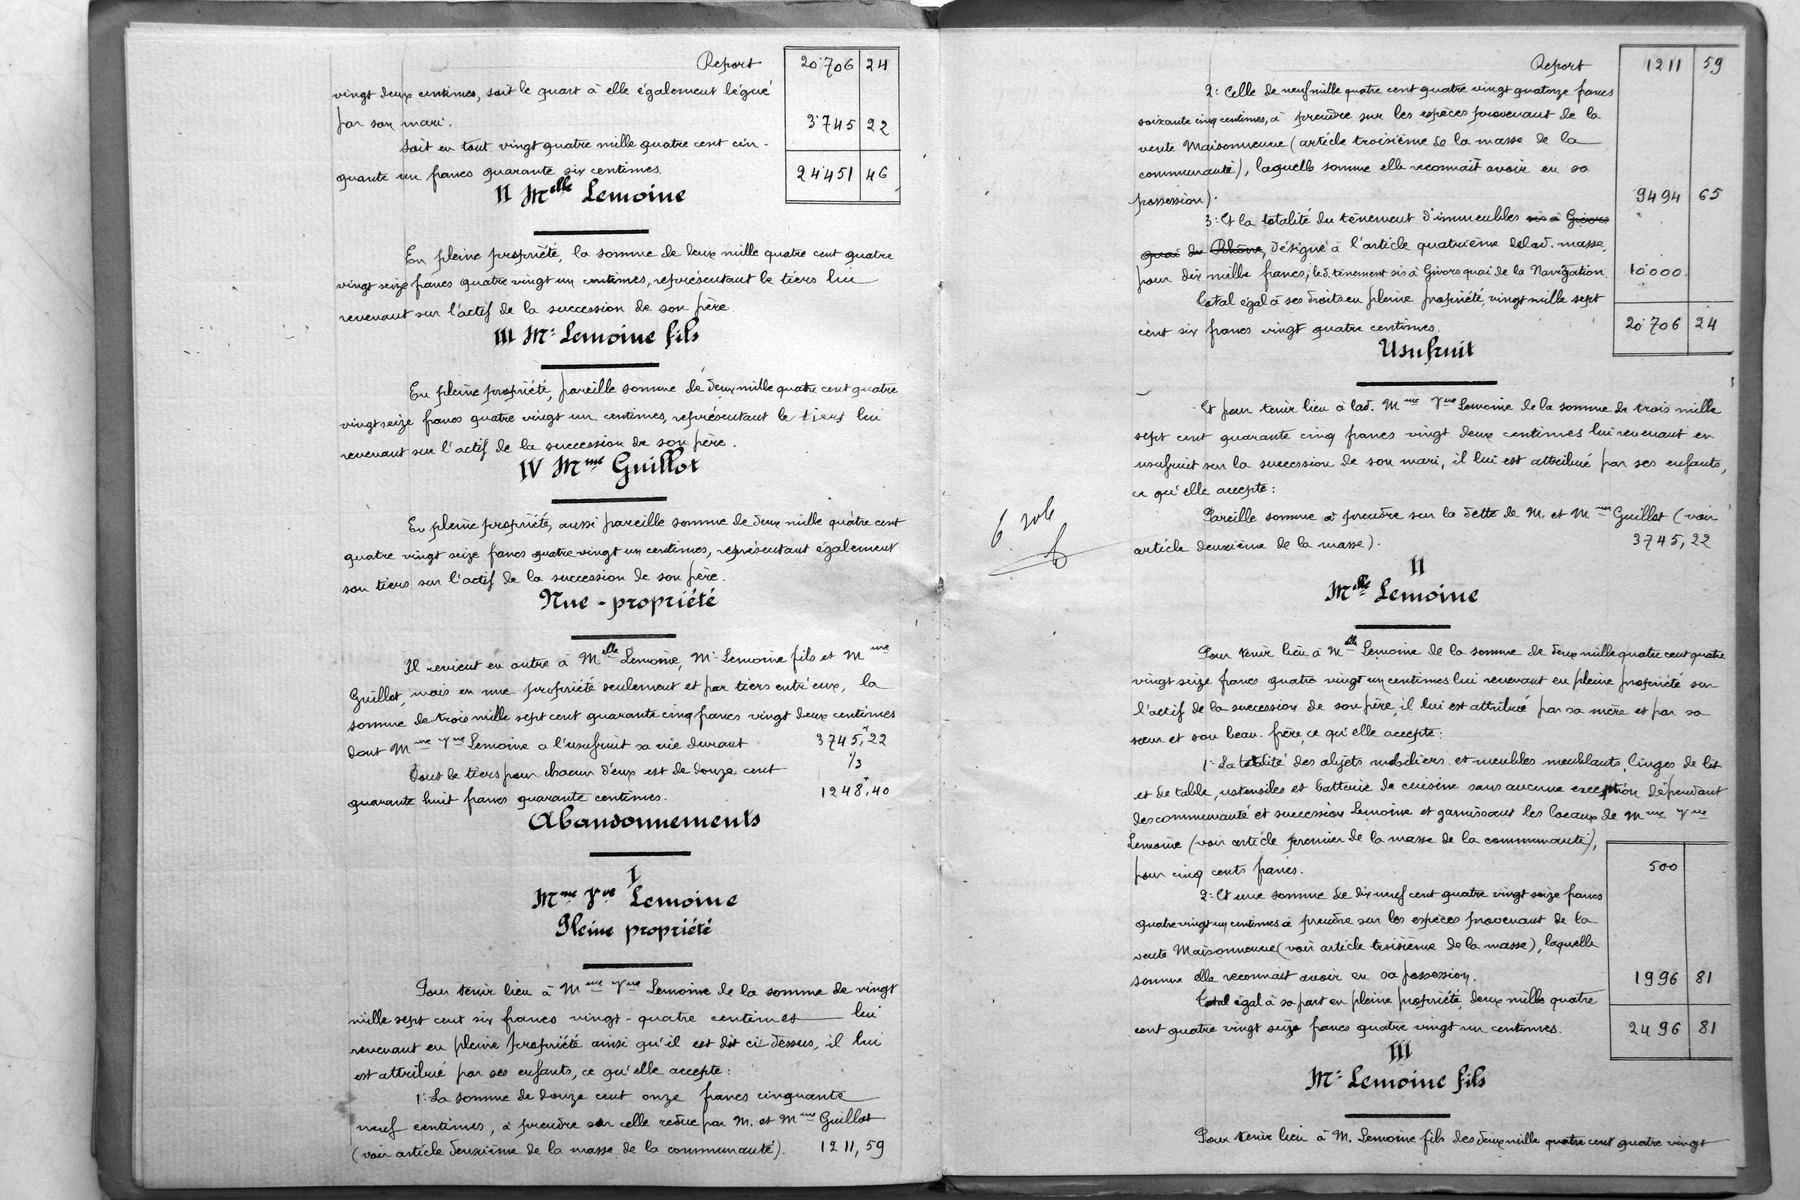 Report 20706 24
vingt deux centimes, soit le quart à elle également légué
par son mari. 3745 22
Soit en tout vingt quatre mille quatre cent cin-
quante un francs quarante six centimes. 24451 46
II Melle Lemoine
En pleine propriété, la somme de deux mille quatre cent quatre
vingt seize francs quatre vingt un centimes, représentant le tiers lui
revenant sur l'actif de la succession de son père
III Mr Lemoine fils
En pleine propriété, pareille somme de deux mille quatre cent quatre
vingt seize francs quatre vingt un centimes, représentant le tiers lui
revenant sur l'actif de la succession de son père.
IV Mme Guillot
En pleine propriété, aussi pareille somme de deux mille quatre cent
quatre vingt seize francs quatre vingt un centimes, représentant également
son tiers sur l'actif de la succession de son père.
Nue-propriété
Il revient en outre à Melle Lemoine, Mr Lemoine fils et Mme
Guillot, mais en nue propriété seulement et par tiers entr'eux, la
somme de trois mille sept cent quarante cinq francs vingt deux centimes
dont Mme Vve Lemoine a l'usufruit sa vie durant 3745,22
Dont le tiers pour chacun d'eux est de douze cent 1/3
quarante huit francs quarante centimes. 1248,40
Abandonnements
I
Mme Vve Lemoine
Pleine propriété
Pour tenir lieu à Mme Vve Lemoine de la somme de vingt
mille sept cent six francs vingt-quatre centimes lui
revenant en pleine propriété ainsi qu'il est dit ci dessus, il lui
est attribué par ses enfants, ce qu'elle accepte:
1: La somme de douze cent onze francs cinquante
neuf centimes, à prendre sur celle redue par M. et Mme Guillot
(voir article deuxième de la masse de la communauté). 1211,59
Report 1211 59
2: Celle de neuf mille quatre cent quatre vingt quatorze francs
soixante cinq centimes, à prendre sur les espèces provenant de la
vente Maisonneuve (article troisième de la masse de la
communauté), laquelle somme elle reconnaît avoir en sa
possession). 9494 65
3: Et la totalité du tènement d'immeubles sis à Givors
quai du Rhône, désigné à l'article quatrième de lad. masse,
pour dix mille francs; led. tènement sis à Givors quai de la Navigation. 10000
Total égal à ses droits en pleine propriété, vingt mille sept
cent six francs vingt quatre centimes. 20706 24
Usufruit
Et pour tenir lieu à lad. Mme Vve Lemoine de la somme de trois mille
sept cent quarante cinq francs vingt deux centimes lui revenant en
usufruit sur la succession de son mari, il lui est attribué par ses enfants,
ce qu'elle accepte:
Pareille somme à prendre sur la dette de M. et Mme Guillot (voir
article deuxième de la masse). 3745,22
II
Melle Lemoine
Pour tenir lieu à Melle Lemoine de la somme de deux mille quatre cent quatre
vingt seize francs quatre vingt un centimes lui revenant en pleine propriété sur
l'actif de la succession de son père, il lui est attribué par sa mère et par sa
sœur et son beau frère, ce qu'elle accepte:
1: La totalité des objets mobiliers et meubles meublants, linges de lit
et de table, ustensiles et batterie de cuisine sans aucune exception dépendant
des communauté et succession Lemoine et garnissant les locaux de Mme Vve
Lemoine (voir article premier de la masse de la communauté),
pour cinq cents francs. 500
2: Et une somme de dix neuf cent quatre vingt seize francs
quatre vingt un centimes à prendre sur les espèces provenant de la
vente Maisonneuve (voir article troisième de la masse), laquelle
somme elle reconnaît avoir en sa possession. 1996 81
Total égal à sa part en pleine propriété, deux mille quatre
cent quatre vingt seize francs quatre vingt un centimes. 2496 81
III
Mr Lemoine fils
Pour tenir lieu à M. Lemoine fils des deux mille quatre cent quatre vingt